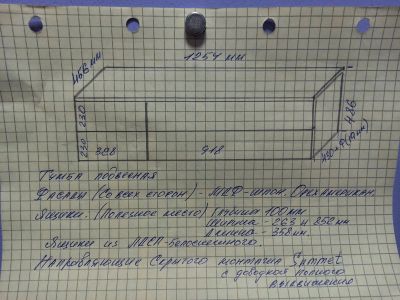 1254 мм
466 мм
230
230
308
918
486
Тумба подвесная
Фасады (Со всех сторон) - МДФ-шпон. Орех американ.
Ящики. (Полезное место) Глубина 100мм
Ширина - 263 и 852 мм
Длинна - 358мм.
Ящики из ЛДСП-белоснежного.
Направляющие Скрытого монтажа Samet
с доводкой полного
выдвижения